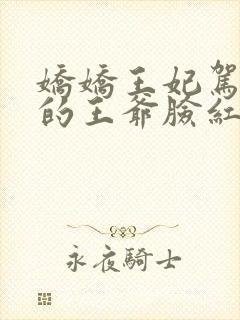 嬌嬌王妃駕
的王爺臉紅
永夜騎士